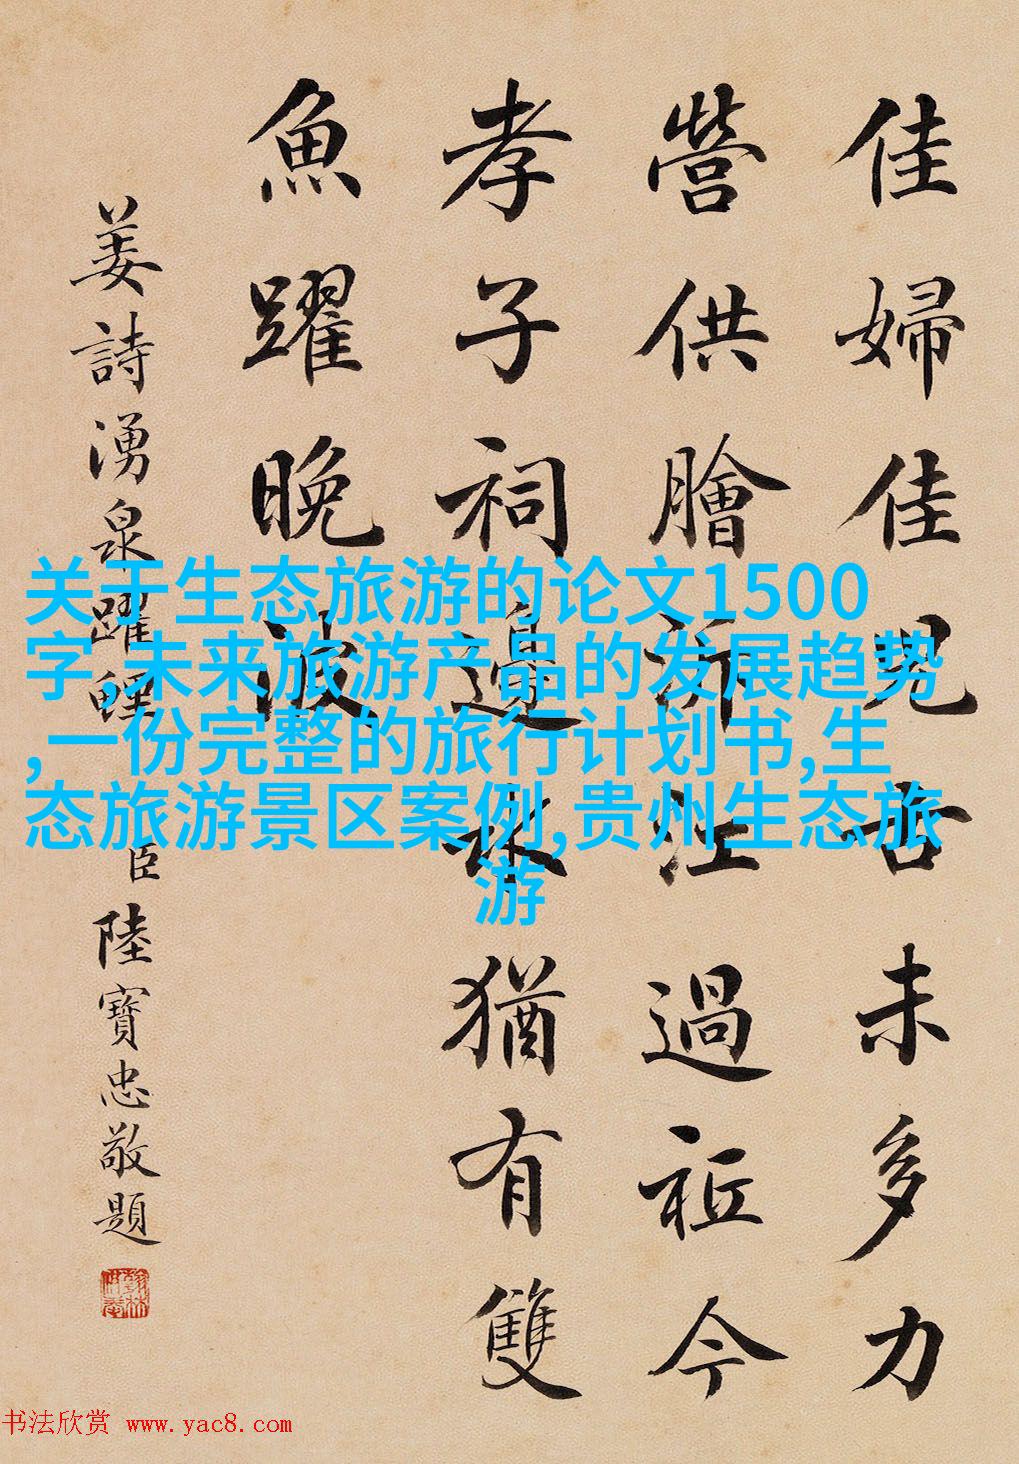 佳婦佳兒古未多力
營供膾泝江過祇今
孝子祠邊水猶有雙
魚躍晚波
姜詩湧泉躍鯉 臣陸寶忠敬題
关于生态旅游的论文1500
字,未来旅游产品的发展趋势
,一份完整的旅行计划书,生
态旅游景区案例,贵州生态旅
游
书法欣赏 www.yac8.com